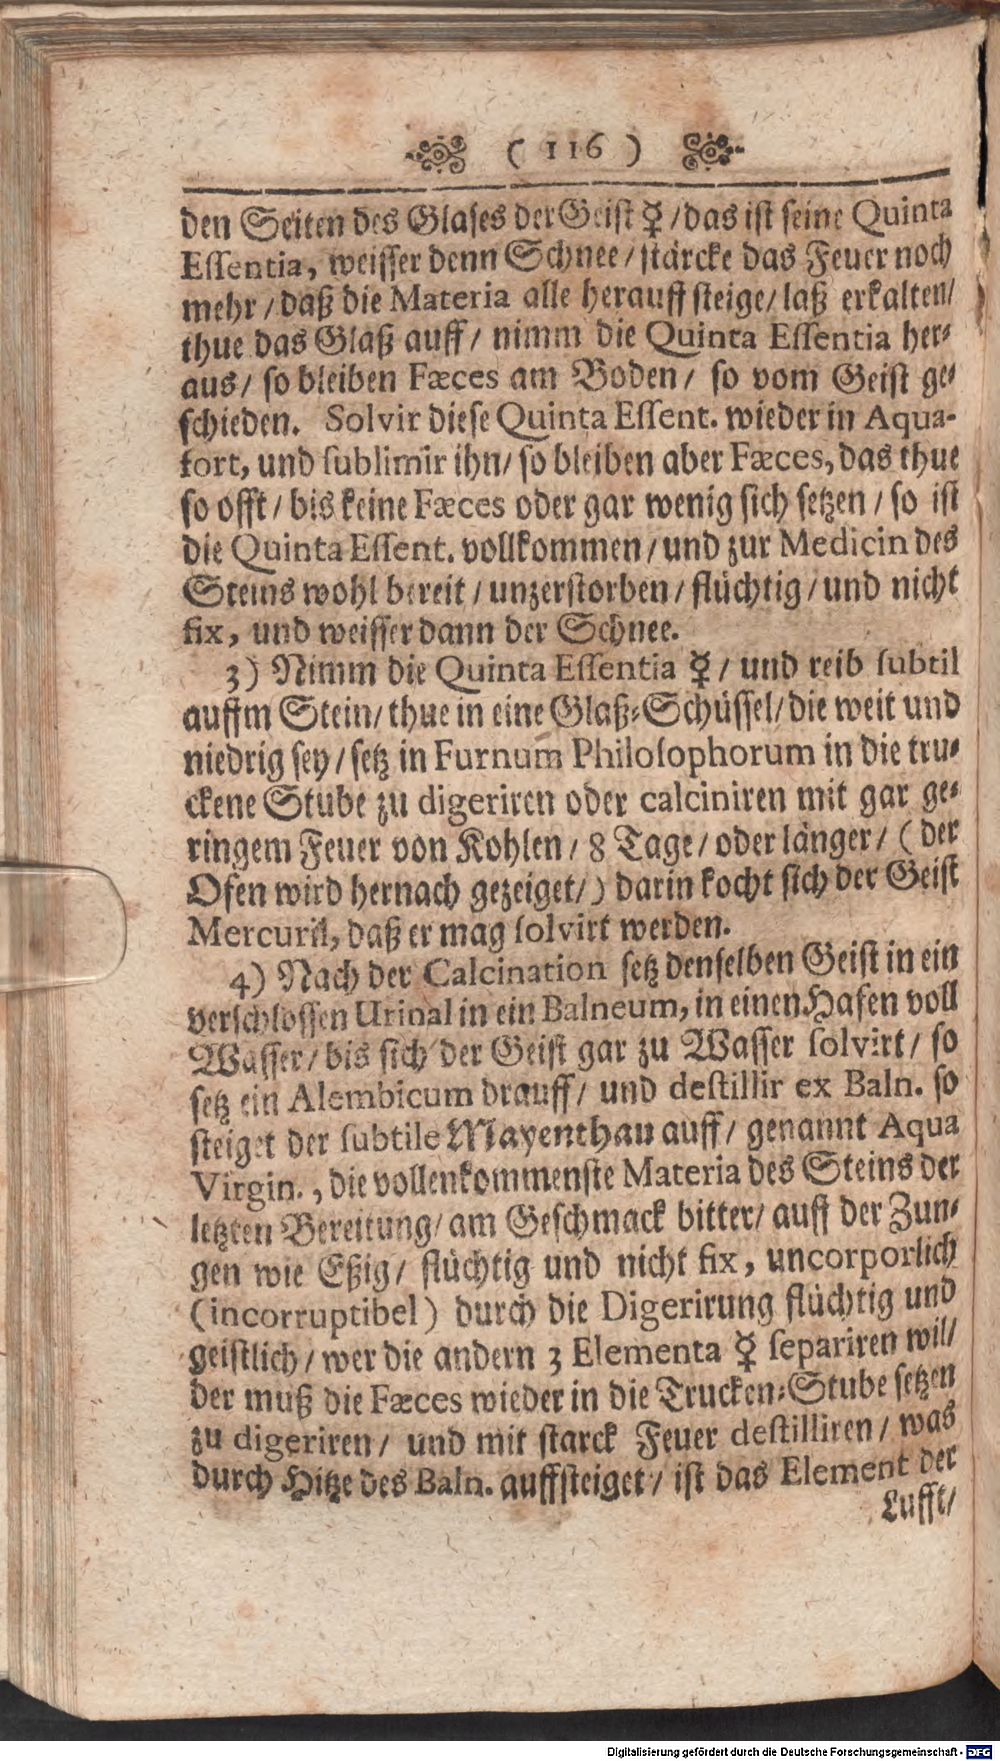 ( 116 )
den Seiten des Glases der Geist ☿ / das ist seine Quinta
Essentia, weisser denn Schnee / stärcke das Feuer noch
mehr / daß die Materia alle herauff steige / laß erkalten /
thue das Glaß auff / nimm die Quinta Essentia her-
aus / so bleiben Fæces am Boden / so vom Geist ge-
schieden. Solvir diese Quinta Essent. wieder in Aqua-
fort, und sublimir ihn / so bleiben aber Fæces, das thue
so offt / bis keine Fæces oder gar wenig sich setzen / so ist
die Quinta Essent. vollkommen / und zur Medicin des
Steins wohl bereit / unzerstorben / flüchtig / und nicht
fix, und weisser dann der Schnee.
3) Nimm die Quinta Essentia ☿ / und reib subtil
auffm Stein / thue in eine Glaß-Schüssel / die weit und
niedrig sey / setz in Furnum Philosophorum in die tru-
ckene Stube zu digeriren oder calciniren mit gar ge-
ringem Feuer von Kohlen / 8 Tage / oder länger / ( der
Ofen wird hernach gezeiget / ) darin kocht sich der Geist
Mercurii, daß er mag solvirt werden.
4) Nach der Calcination setz denselben Geist in ein
verschlossen Urinal in ein Balneum, in einen Hafen voll
Wasser / bis sich der Geist gar zu Wasser solvirt / so
setz ein Alembicum drauff / und destillir ex Baln. so
steiget der subtile Mayenthau auff / genannt Aqua
Virgin., die vollenkommenste Materia des Steins der
letzten Bereitung / am Geschmack bitter / auff der Zun-
gen wie Eßig / flüchtig und nicht fix, uncorporlich
(incorruptibel) durch die Digerirung flüchtig und
geistlich / wer die andern 3 Elementa ☿ separiren wil /
der muß die Fæces wieder in die Trucken-Stube setzen
zu digeriren / und mit starck Feuer destilliren / was
durch Hitze des Baln. auffsteiget / ist das Element der
Lufft /
Digitalisierung gefördert durch die Deutsche Forschungsgemeinschaft - DFG